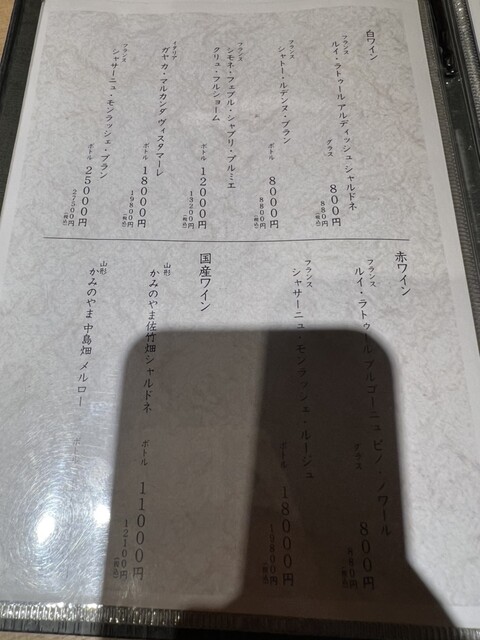 白ワイン
フランス
ルイ・ラトゥール アルディッシュ シャルドネ
グラス 800円
880円(税込)
フランス
シャトー・ルデンヌ・ブラン
ボトル 8000円
8800円(税込)
フランス
シモネ・フェブル・シャブリ・プルミエ
クリュ・フルショーム
ボトル 12000円
13200円(税込)
イタリア
ガヤ カ・マルカンダ ヴィスタマーレ
ボトル 18000円
19800円(税込)
フランス
シャサーニュ・モンラッシェ・ブラン
ボトル 25000円
27500円(税込)
赤ワイン
フランス
ルイ・ラトゥール ブルゴーニュ ピノ・ノワール
グラス 800円
880円(税込)
フランス
シャサーニュ・モンラッシェ・ルージュ
ボトル 18000円
19800円(税込)
国産ワイン
山形
かみのやま佐竹畑 シャルドネ
ボトル 11000円
12100円(税込)
山形
かみのやま 中島畑 メルロー